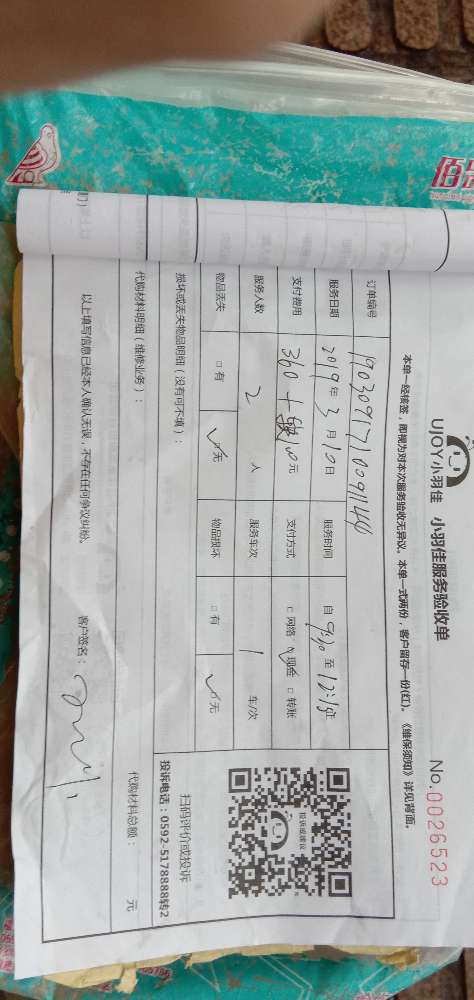 UJOY小羽佳 小羽佳服务验收单
No.0026523
本单一经核签，即视为对本次服务验收无异议。本单一式两份，客户留存一份(红)。《维保须知》详见背面。
订单编号 1903091710091146
服务日期 2019年3月10日 服务时间 自9:30至12:15
支付费用 360+ 元 支付方式 □网络 ☑现金 □转账
服务人数 2 人 服务车次 1 车/次
物品丢失 □有 ☑无 物品损坏 □有 ☑无
损坏或丢失物品明细（没有可不填）：
投诉或建议
扫码评价或投诉
投诉电话：0592-5178888转2
代购材料明细（维修业务）：
代购材料总额： 元
以上填写信息已经本人确认无误，不存在任何争议纠纷。
客户签名：